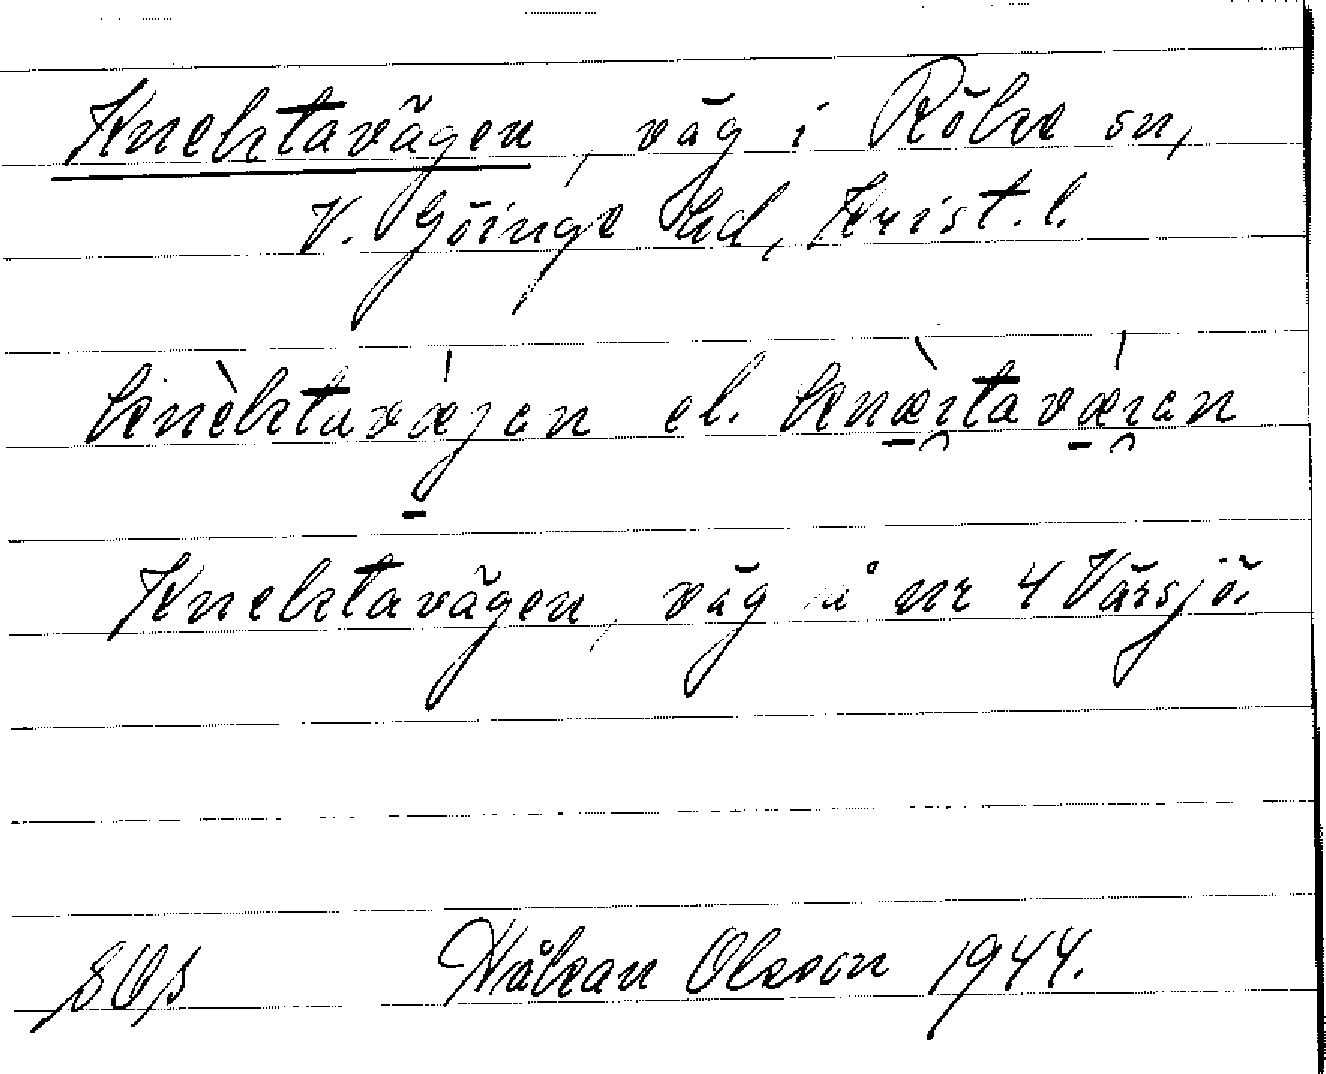 Knektavägen, väg i Röke sn,
V. Göinge hd, Krist. l.
knèktavǽjan el. knæ̀i̯tavǽi̯an
Knektavägen, väg å nr 4 Värsjö.
Håkan Olsson 1944.